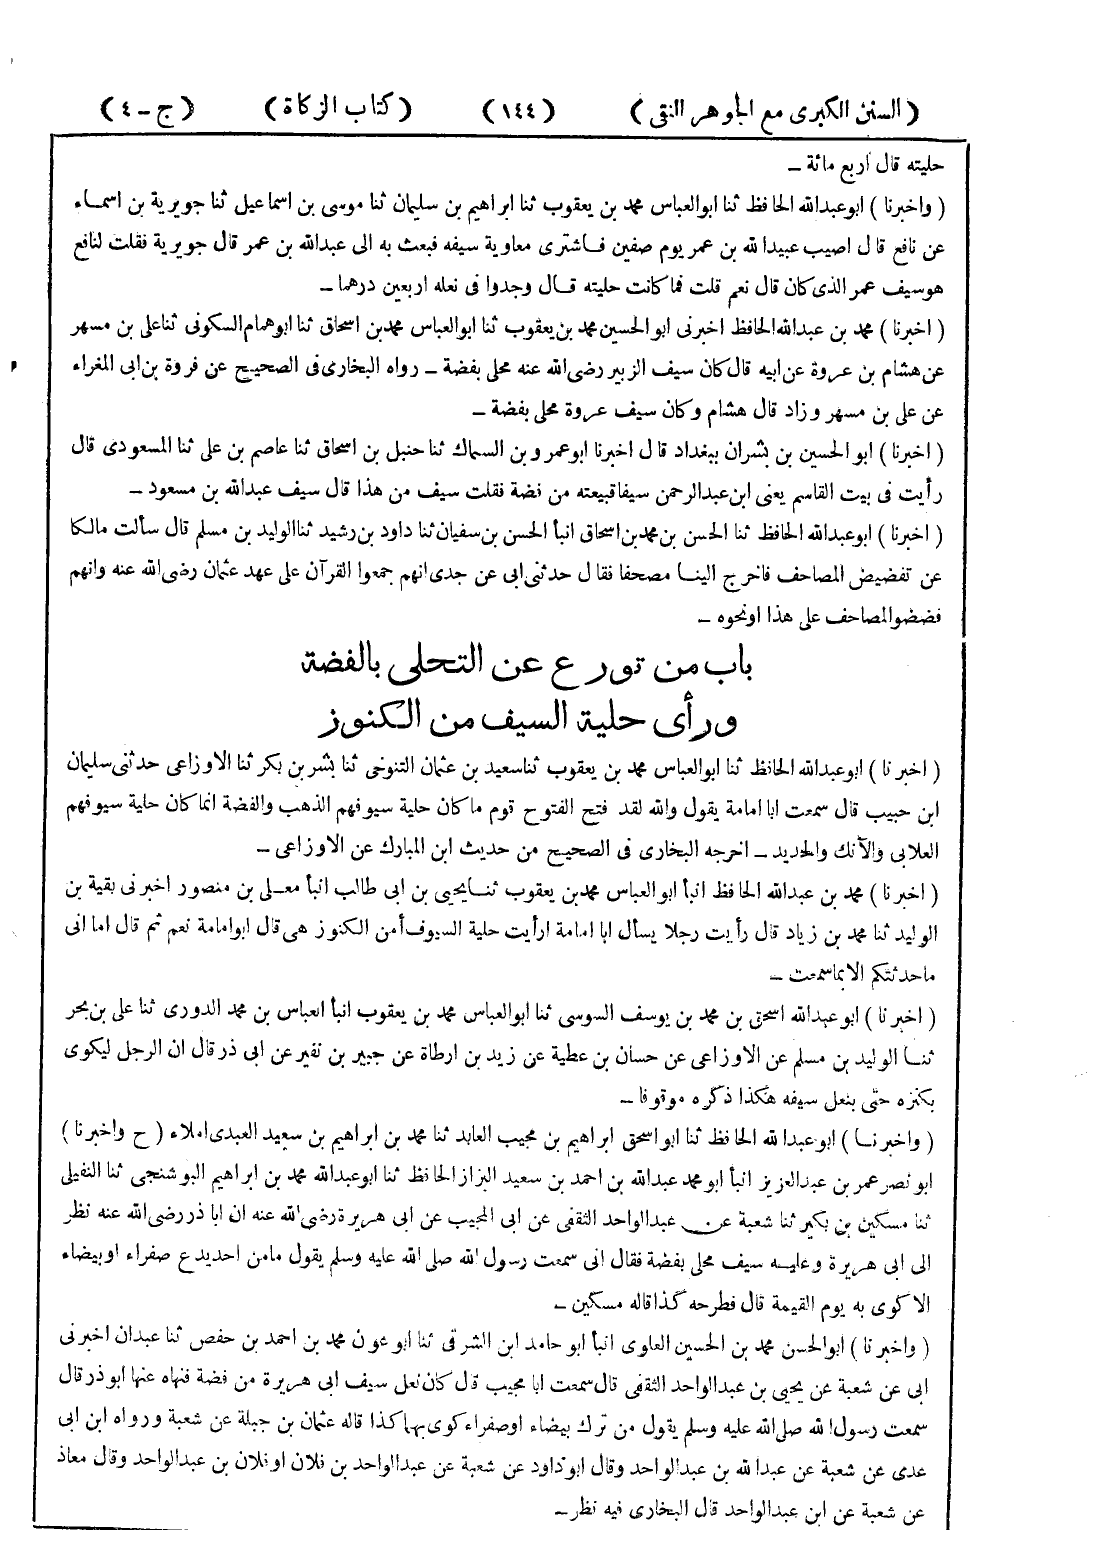 ( السنن الكبرى مع الجوهر النقى ) ( ١٤٤ ) ( كتاب الزكاة ) ( ج – ٤ )
حليته قال اربع مائة –
( واخبرنا ) ابوعبدالله الحافظ ثنا ابوالعباس محمد بن يعقوب ثنا ابراهيم بن سليمان ثنا موسى بن اسماعيل ثنا جويرية بن اسماء
عن نافع قال اصيب عبيدالله بن عمر يوم صفين فاشترى معاوية سيفه فبعث به الى عبدالله بن عمر قال جويرية فقلت لنافع
هوسيف عمر الذى كان قال نعم قلت فما كانت حليته قال وجدوا فى نعله اربعين درهما –
( اخبرنا ) محمد بن عبدالله الحافظ اخبرنى ابوالحسين محمد بن يعقوب ثنا ابوالعباس محمد بن اسحاق ثنا ابوهمام السكونى ثنا على بن مسهر
عن هشام بن عروة عن ابيه قال كان سيف الزبير رضى الله عنه محلى بفضة – رواه البخارى فى الصحيح عن فروة بن ابى المغراء
عن على بن مسهر وزاد قال هشام وكان سيف عروة محلى بفضة –
( اخبرنا ) ابو الحسين بن بشران ببغداد قال اخبرنا ابوعمرو بن السماك ثنا حنبل بن اسحاق ثنا عاصم بن على ثنا المسعودى قال
رأيت فى بيت القاسم يعنى ابن عبدالرحمن سيفا قبيعته من فضة فقلت سيف من هذا قال سيف عبدالله بن مسعود –
( اخبرنا ) ابوعبدالله الحافظ ثنا الحسن بن محمد بن اسحاق انبأ الحسن بن سفيان ثنا داود بن رشيد ثنا الوليد بن مسلم قال سألت مالكا
عن تفضيض المصاحف فاخرج الينا مصحفا فقال حدثنى ابى عن جدى انهم جمعوا القرآن على عهد عثمان رضى الله عنه وانهم
فضضوا المصاحف على هذا اونحوه –
باب من تورع عن التحلى بالفضة
ورأى حلية السيف من الكنوز
( اخبرنا ) ابوعبدالله الحافظ ثنا ابوالعباس محمد بن يعقوب ثنا سعيد بن عثمان التنوخى ثنا بشر بن بكر ثنا الاوزاعى حدثنى سليمان
ابن حبيب قال سمعت ابا امامة يقول والله لقد فتح الفتوح قوم ما كان حلية سيوفهم الذهب والفضة انما كان حلية سيوفهم
العلابى والآنك والحديد – اخرجه البخارى فى الصحيح من حديث ابن المبارك عن الاوزاعى –
( اخبرنا ) محمد بن عبدالله الحافظ انبأ ابوالعباس محمد بن يعقوب ثنا يحيى بن ابى طالب انبأ معلى بن منصور اخبرنى بقية بن
الوليد ثنا محمد بن زياد قال رأيت رجلا يسأل ابا امامة ارأيت حلية السيوف أمن الكنوز هى قال ابوامامة نعم ثم قال اما انى
ماحدثتكم الا بما سمعت –
( اخبرنا ) ابوعبدالله اسحق بن محمد بن يوسف السوسى ثنا ابوالعباس محمد بن يعقوب انبأ العباس بن محمد الدورى ثنا على بن بحر
ثنا الوليد بن مسلم عن الاوزاعى عن حسان بن عطية عن زيد بن ارطاة عن جبير بن نفير عن ابى ذر قال ان الرجل ليكوى
بكنزه حتى بنعل سيفه هكذا ذكره موقوفا –
( واخبرنا ) ابوعبدالله الحافظ ثنا ابواسحق ابراهيم بن مجيب العابد ثنا محمد بن ابراهيم بن سعيد العبدى املاء ( ح واخبرنا )
ابونصر عمر بن عبدالعزيز انبأ ابومحمد عبدالله بن احمد بن سعيد البزاز الحافظ ثنا ابوعبدالله محمد بن ابراهيم البوشنجى ثنا النفيلى
ثنا مسكين بن بكير ثنا شعبة عن عبدالواحد الثقفى عن ابى المجيب عن ابى هريرة رضى الله عنه ان ابا ذر رضى الله عنه نظر
الى ابى هريرة وعليه سيف محلى بفضة فقال انى سمعت رسول الله صلى الله عليه وسلم يقول مامن احد يدع صفراء اوبيضاء
الا كوى به يوم القيمة قال فطرحه كذا قاله مسكين –
( واخبرنا ) ابوالحسن محمد بن الحسين العلوى انبأ ابوحامد ابن الشرقى ثنا ابوعون محمد بن احمد بن حفص ثنا عبدان اخبرنى
ابى عن شعبة عن يحيى بن عبدالواحد الثقفى قال سمعت ابا مجيب قال كان نعل سيف ابى هريرة من فضة فنهاه عنها ابوذر قال
سمعت رسول الله صلى الله عليه وسلم يقول من ترك بيضاء اوصفراء كوى بها كذا قاله عثمان بن جبلة عن شعبة ورواه ابن ابى
عدى عن شعبة عن عبدالله بن عبدالواحد وقال ابوداود عن شعبة عن عبدالواحد بن فلان اوفلان بن عبدالواحد وقال معاذ
عن شعبة عن ابن عبدالواحد قال البخارى فيه نظر –